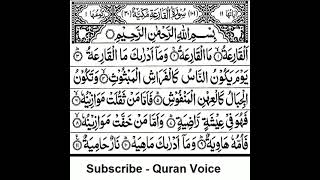 سُوْرَةُ الْقَارِعَةِ مَكِّيَّةٌ
بِسْمِ اللّٰهِ الرَّحْمٰنِ الرَّحِيْمِ
اَلْقَارِعَةُ ۙ﴿۱﴾ مَا الْقَارِعَةُ ۚ﴿۲﴾ وَمَاۤ اَدْرٰىكَ مَا الْقَارِعَةُ ؕ﴿۳﴾
يَوْمَ يَكُوْنُ النَّاسُ كَالْفَرَاشِ الْمَبْثُوْثِ ۙ﴿۴﴾ وَتَكُوْنُ
الْجِبَالُ كَالْعِهْنِ الْمَنْفُوْشِ ؕ﴿۵﴾ فَاَمَّا مَنْ ثَقُلَتْ مَوَازِيْنُهٗ ۙ﴿۶﴾
فَهُوَ فِيْ عِيْشَةٍ رَّاضِيَةٍ ؕ﴿۷﴾ وَاَمَّا مَنْ خَفَّتْ مَوَازِيْنُهٗ ۙ﴿۸﴾
فَاُمُّهٗ هَاوِيَةٌ ؕ﴿۹﴾ وَمَاۤ اَدْرٰىكَ مَا هِيَهْ ؕ﴿۱۰﴾ نَارٌ حَامِيَةٌ ﴿۱۱﴾
Subscribe - Quran Voice